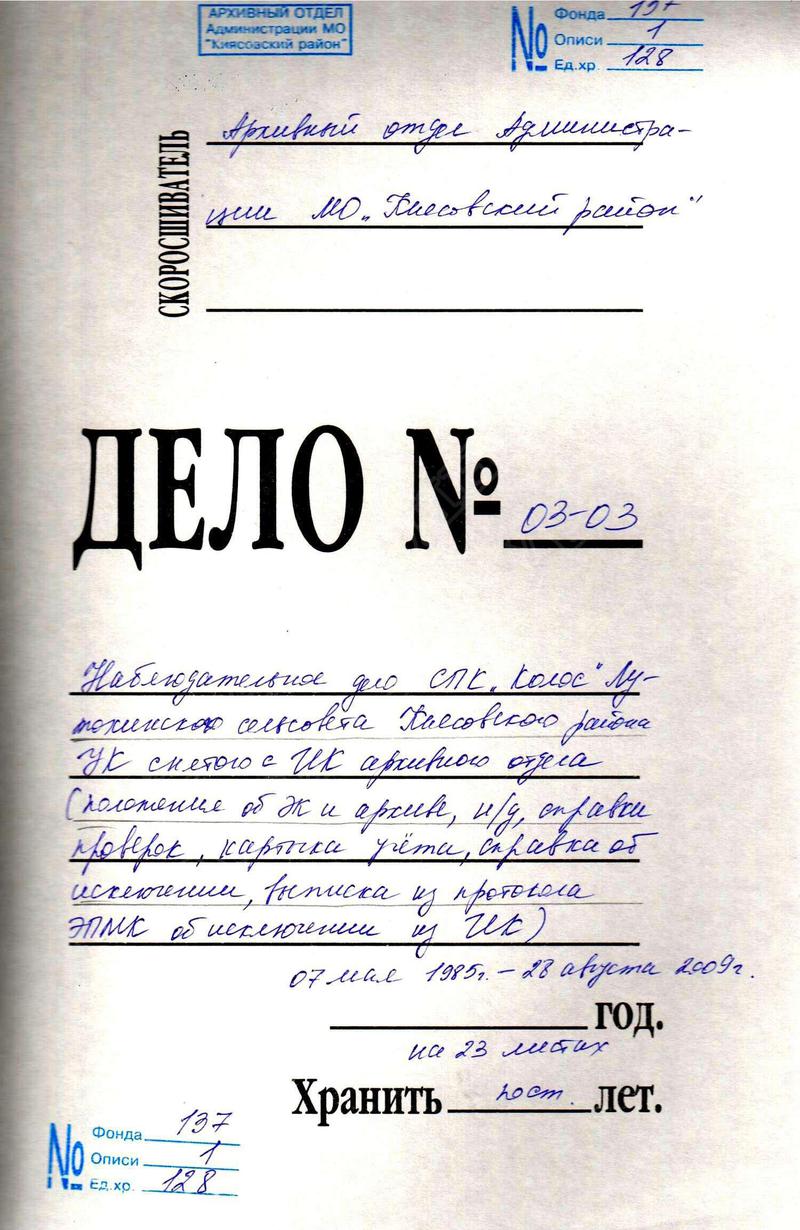 АРХИВНЫЙ ОТДЕЛ
Администрации МО
"Киясовский район"
№
Фонда 137
Описи 1
Ед.хр. 128
СКОРОСШИВАТЕЛЬ
Архивный отдел Администра-
ции МО „Киясовский район"
ДЕЛО № 03-03
Наблюдательное дело СПК „Колос" Лу-
тохинского сельсовета Киясовского района
УК снятого с ИК архивного отдела
(положения об ЭК и архиве, н/д, справки
проверок, картыка учёта, справка об
исключении, выписка из протокола
ЭПМК об исключении из ИК)
07 мая 1985г. – 28 августа 2009г.
год.
на 23 листах
Хранить пост. лет.
№
Фонда 137
Описи 1
Ед.хр. 128